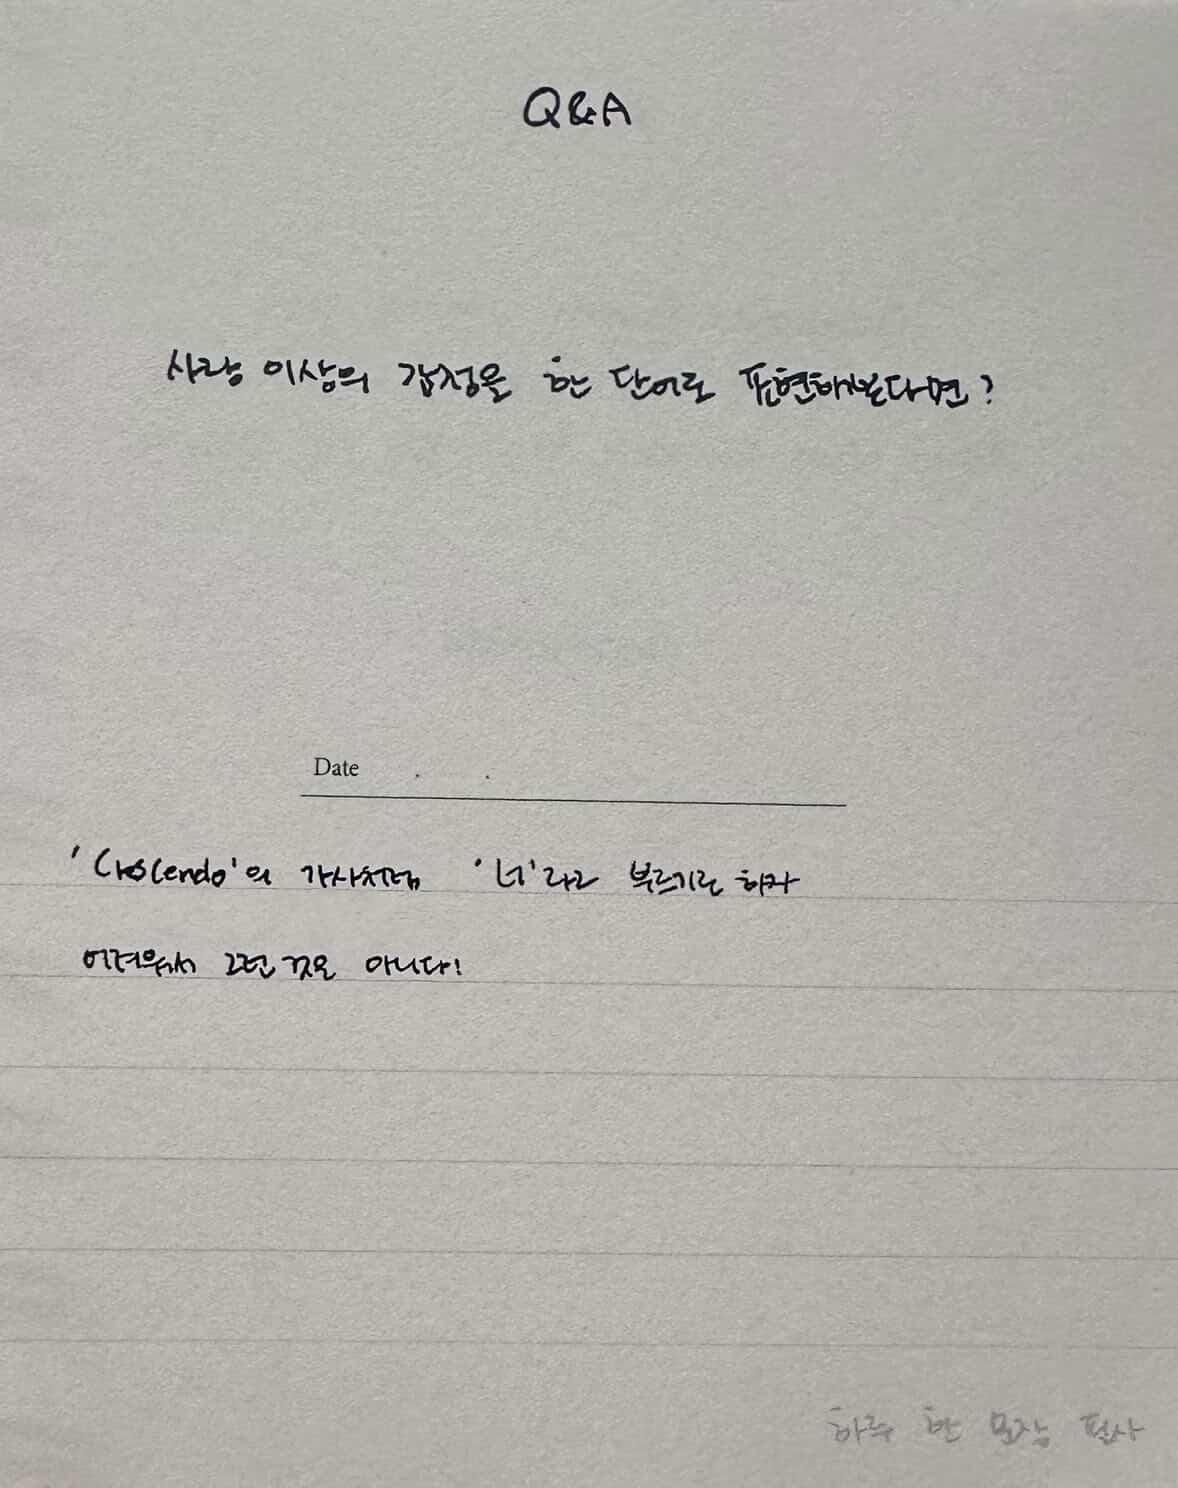 Q&A
사랑 이상의 감정을 한 단어로 표현해본다면?
Date . .
'Crescendo'의 가사처럼 '너'라고 부르기로 하자
어려워서 그런 것은 아니다!
하루 한 문장 필사